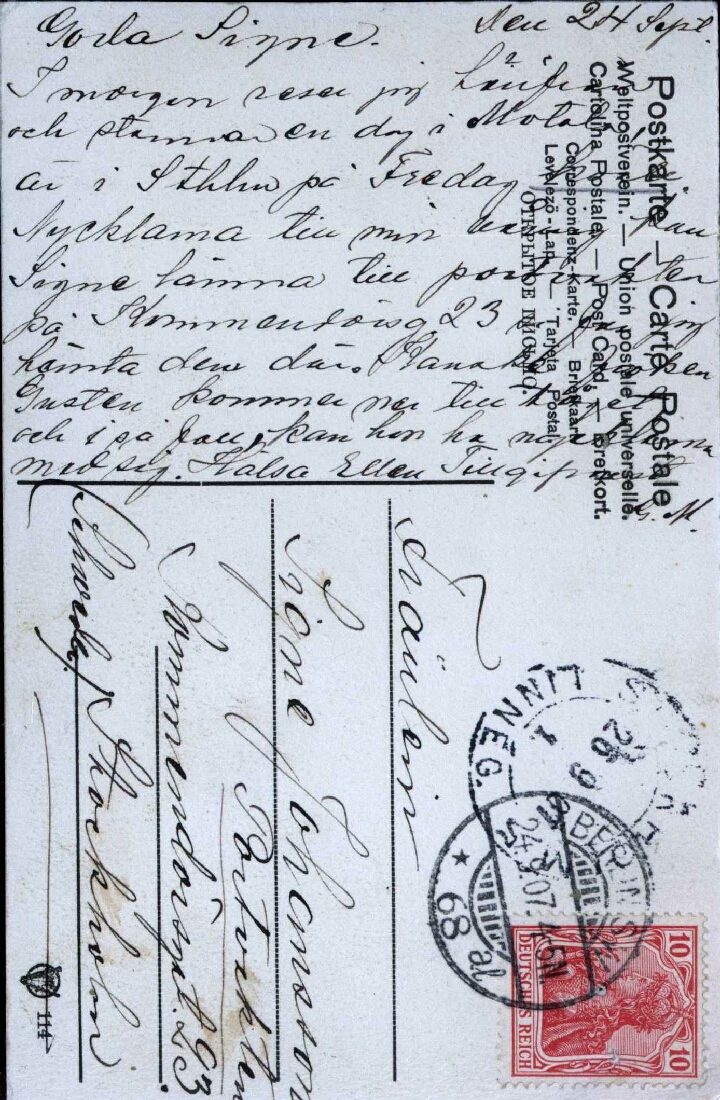 Goda Signe. Den 24 Sept.
I morgon reser jag
och stannar en dag i Motala
är i Sthlm på Fredag
Nycklarna till min kan
Signe lämna till portvakten
på Kommendörsg 23 så kan jag
hämta dem där. Kanske
Gusten kommer ner till
och i så fall kan hon ha nycklarna
med sig. Hälsa Ellen
G. M.
Postkarte — Carte Postale
Weltpostverein. — Union postale universelle.
Cartolina Postale. — Post Card. — Brefkort.
Correspondenz-Karte. — Briefkaart
Levelező-Lap. — Tarjeta Postal.
ОТКРЫТОЕ ПИСЬМО.
Fräulein
Signe Johansson
Portvakten
Kommendörsgt. 23.
Stockholm
Schweden
LINNÉG.
26 9
1
BERLIN S.W.
24.9.07. 4-5N.
* 68 al
10 10
DEUTSCHES REICH
114